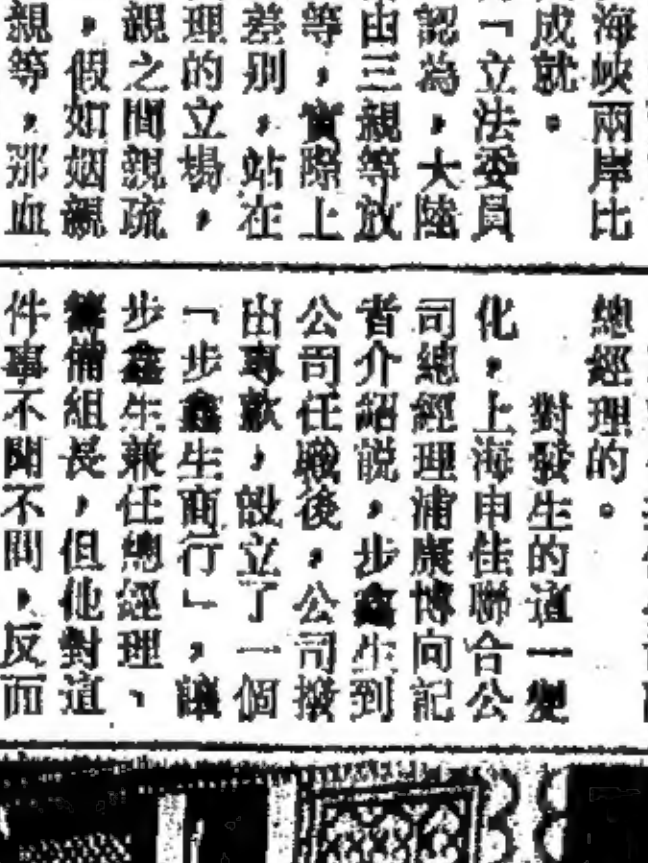 海峽兩岸比
成就。
「立法委員
認為，大陸
由三親等放
等，實際上
差別，站在
理的立場，
親之間親疏
，假如姻親
親等，那血
總經理的。
對發生的這一變
化，上海申佳聯合公
司總經理浦康博向記
者介紹説，步鑫生到
公司任職後，公司撥
出專款，設立了一個
「步鑫生商行」，讓
步鑫生兼任總經理、
籌備組長，但他對這
件事不聞不問，反而